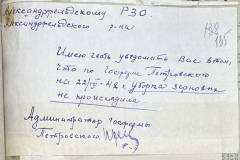 Александрфельдскому РЗО
Александрфельдского р-на
Имею честь уведомить Вас в том,
что по госхуту Петровского
на 22/VI-42 г уборка зерновых
не происходила
Администратор госхуты
Петровского